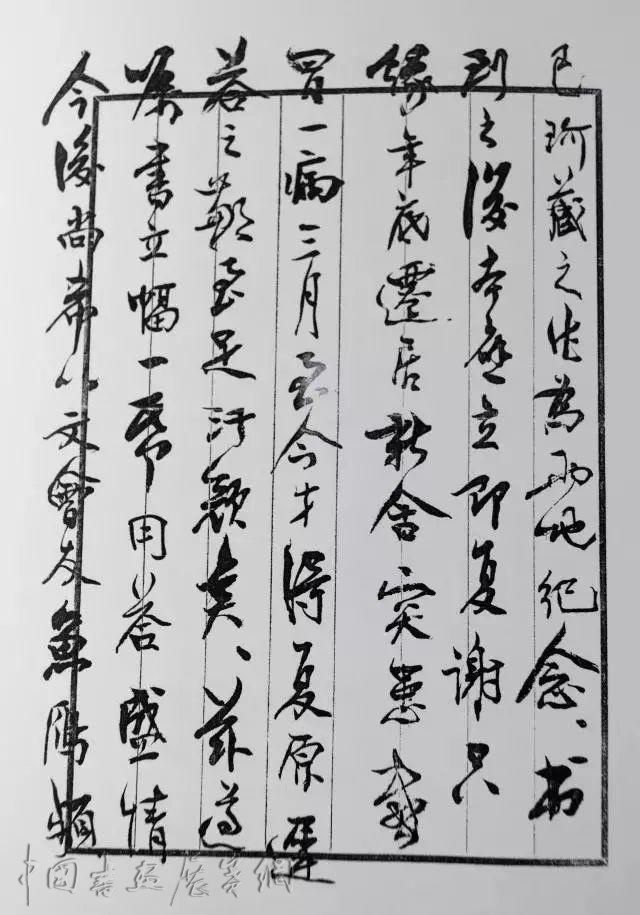 已珍藏之作為兩地纪念、书
到之後本應立即复謝只
緣年底遷居新舍突患感
冒一病三月至今才得复原遲
答之歉至足汗顏矣、茲遵
嘱書立幅一帋用答盛情
今後尚希以文會友魚雁頻
中國書画展赛網